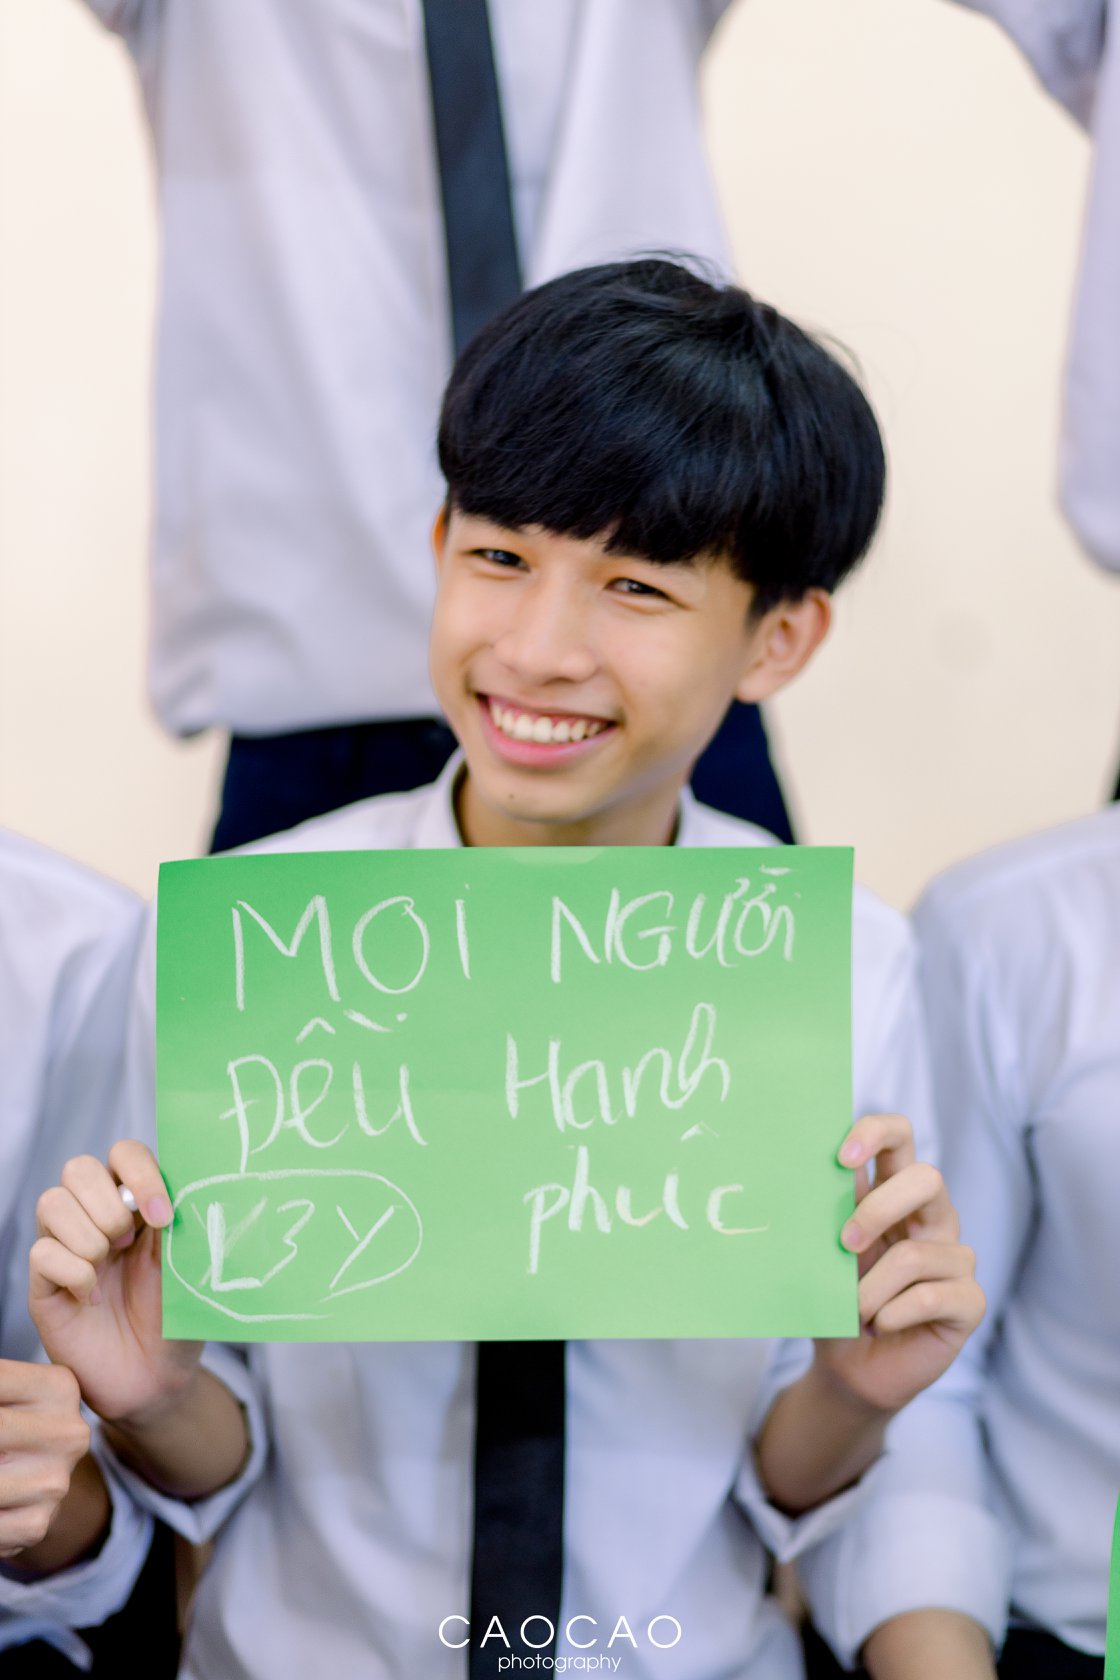 MỌI NGƯỜI
ĐỀU Hanh
phuc
L3Y
CAOCAO
photography